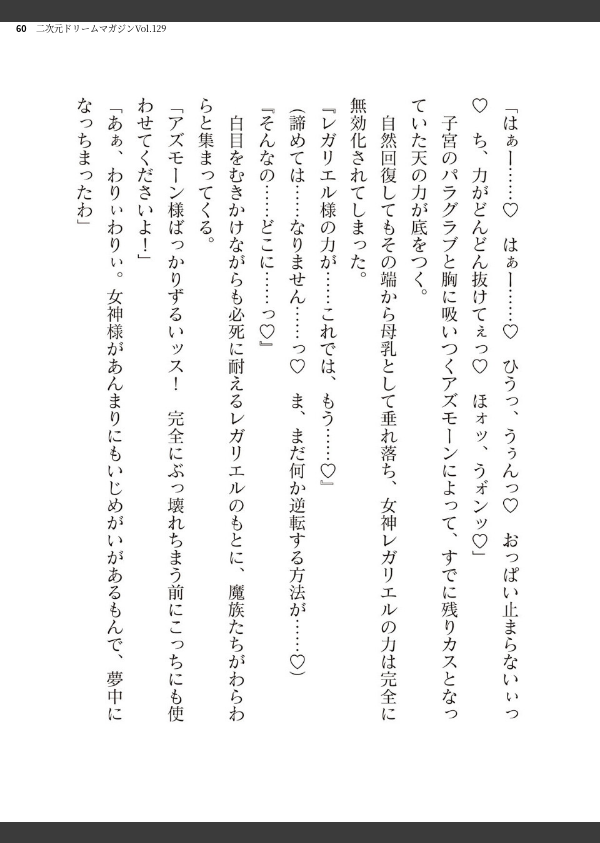 60 二次元ドリームマガジンVol.129
「はぁー……♡　はぁー……♡　ひうっ、うぅんっ♡　おっぱい止まらないぃっ
♡　ち、力がどんどん抜けてぇっ♡　ほォッ、うオ゛ンッ♡」
　子宮のパラグラブと胸に吸いつくアズモーンによって、すでに残りカスとなっ
ていた天の力が底をつく。
　自然回復してもその端から母乳として垂れ落ち、女神レガリエルの力は完全に
無効化されてしまった。
『レガリエル様の力が……これでは、もう……♡』
（諦めては……なりません……っ♡　ま、まだ何か逆転する方法が……♡）
『そんなの……どこに……っ♡』
　白目をむきかけながらも必死に耐えるレガリエルのもとに、魔族たちがわらわ
らと集まってくる。
「アズモーン様ばっかりずるいッス！　完全にぶっ壊れちまう前にこっちにも使
わせてくださいよ！」
「あぁ、わりぃわりぃ。女神様があんまりにもいじめがいがあるもんで、夢中に
なっちまったわ」